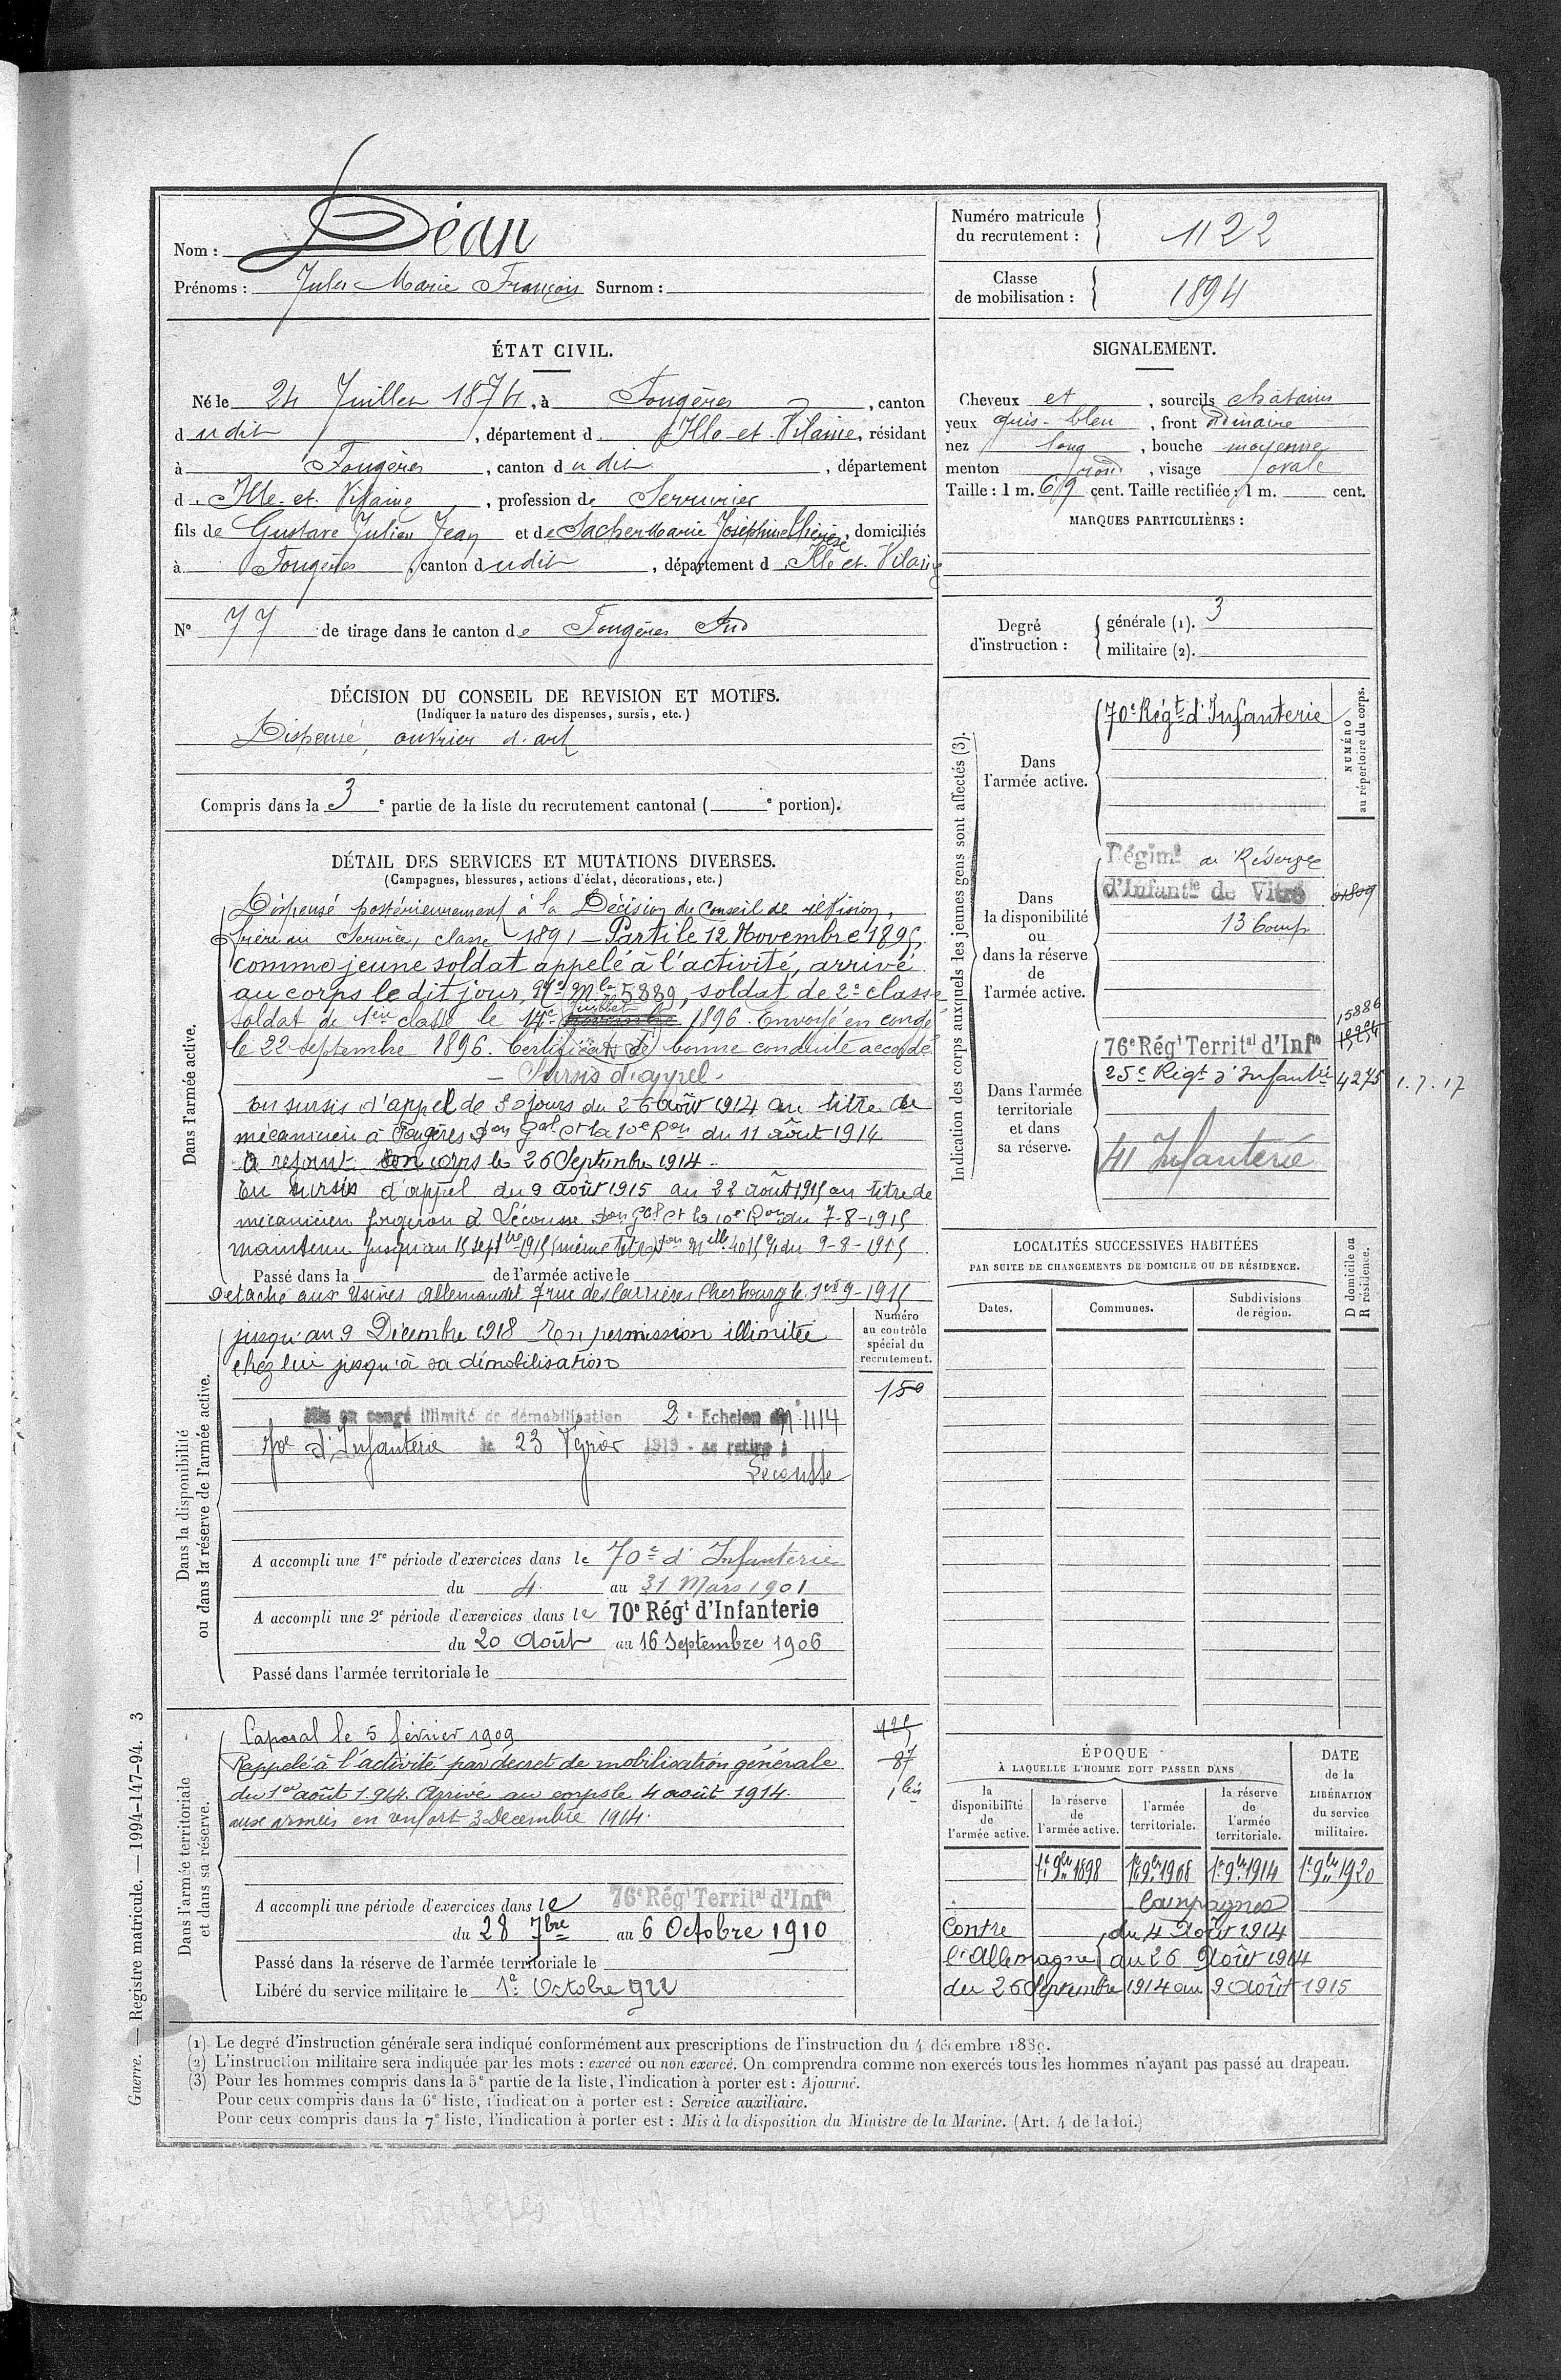 Nom : Déan
Prénoms : Jules Marie François Surnom :
Numéro matricule du recrutement : 1122
Classe de mobilisation : 1894
ÉTAT CIVIL.
Né le 24 Juillet 1874, à Fougères, canton
dudit, département d Ille-et-Vilaine, résidant
à Fougères, canton dudit, département
d Ille-et-Vilaine, profession de Serrurier
fils de Gustave Julien Jean et de Sacher Marie Joséphine, domiciliés
à Fougères, canton dudit, département d Ille et Vilaine
N° 77 de tirage dans le canton de Fougères Sud
SIGNALEMENT.
Cheveux et, sourcils châtains
yeux gris-bleu, front ordinaire
nez long, bouche moyenne
menton rond, visage ovale
Taille : 1 m. 69 cent. Taille rectifiée : 1 m. cent.
MARQUES PARTICULIÈRES :
Degré d'instruction : générale (1). 3
militaire (2).
DÉCISION DU CONSEIL DE REVISION ET MOTIFS.
(Indiquer la nature des dispenses, sursis, etc.)
Dispensé, ouvrier d'art
Compris dans la 3e partie de la liste du recrutement cantonal ( e portion).
DÉTAIL DES SERVICES ET MUTATIONS DIVERSES.
(Campagnes, blessures, actions d'éclat, décorations, etc.)
Dans l'armée active.
Dispensé postérieurement à la Décision du Conseil de révision,
frère au Service, classe 1891 - Parti le 12 Novembre 1895,
comme jeune soldat appelé à l'activité, arrivé
au corps le dit jour, No Mle 5889, soldat de 2e classe
soldat de 1ère classe le 14 juillet novembre 1896. Envoyé en congé
le 22 septembre 1896. Certificat de bonne conduite accordé
- Sursis d'appel -
En sursis d'appel de 30 jours du 26 août 1914 au titre de
mécanicien à Fougères Don Gal Ct la 10e Ron du 11 août 1914
A rejoint son corps le 26 Septembre 1914 -
En sursis d'appel du 9 août 1915 au 22 août 1915 au titre de
mécanicien forgeron à Lécousse Don Gal Ct la 10e Ron du 7-8-1915
maintenu jusqu'au 15 septbre 1915 (même titre) du 9-8-1915
Passé dans la de l'armée active le
Détaché aux Usines Allemandet 7 rue des Carrières Cherbourg le 1er 9-1915
Dans la disponibilité ou dans la réserve de l'armée active.
Numéro au contrôle spécial du recrutement.
150
jusqu'au 9 Décembre 1918 En permission illimitée
chez lui jusqu'à sa démobilisation
Mis en congé illimité de démobilisation 2e Echelon N° 1114
70e d'Infanterie le 23 Vrier 1919 - se retire à
Lécousse
A accompli une 1re période d'exercices dans le 70e d'Infanterie
du 4 au 31 Mars 1901
A accompli une 2e période d'exercices dans le 70e Régt d'Infanterie
du 20 Août au 16 Septembre 1906
Passé dans l'armée territoriale le
Dans l'armée territoriale et dans sa réserve.
Caporal le 5 février 1909
Rappelé à l'activité par décret de mobilisation générale
du 1er août 1914. Arrivé au corps le 4 août 1914.
aux armées en renfort 3 Décembre 1914.
125
87
1 bis
A accompli une période d'exercices dans le 76e Régt Territal d'Infie
du 28 7bre au 6 Octobre 1910
Passé dans la réserve de l'armée territoriale le
Libéré du service militaire le 1er Octobre 1922
Indication des corps auxquels les jeunes gens sont affectés (3).
NUMÉRO au répertoire du corps.
Dans l'armée active.
70e Régt d'Infanterie
Dans la disponibilité ou dans la réserve de l'armée active.
Régimt de Réserve
d'Infantie de Vitré
13 Comp
Dans l'armée territoriale et dans sa réserve.
15886
76e Régt Territal d'Infie
25e Régt d'Infantie 4275 1.7.17
41 Infanterie
LOCALITÉS SUCCESSIVES HABITÉES
PAR SUITE DE CHANGEMENTS DE DOMICILE OU DE RÉSIDENCE.
Dates. Communes. Subdivisions de région. D domicile ou R résidence.
ÉPOQUE
À LAQUELLE L'HOMME DOIT PASSER DANS
DATE de la LIBÉRATION du service militaire.
la disponibilité de l'armée active. la réserve de l'armée active. l'armée territoriale. la réserve de l'armée territoriale.
1er 9bre 1898 1er 9bre 1908 1er 9bre 1914 1er 9bre 1920
Campagnes
Contre du 4 Août 1914
l'Allemagne au 26 Août 1914
du 26 Septembre 1914 au 9 Août 1915
(1) Le degré d'instruction générale sera indiqué conformément aux prescriptions de l'instruction du 4 décembre 1889.
(2) L'instruction militaire sera indiquée par les mots : exercé ou non exercé. On comprendra comme non exercés tous les hommes n'ayant pas passé au drapeau.
(3) Pour les hommes compris dans la 5e partie de la liste, l'indication à porter est : Ajourné.
Pour ceux compris dans la 6e liste, l'indication à porter est : Service auxiliaire.
Pour ceux compris dans la 7e liste, l'indication à porter est : Mis à la disposition du Ministre de la Marine. (Art. 4 de la loi.)
Guerre. — Registre matricule. — 1994-147-94. 3